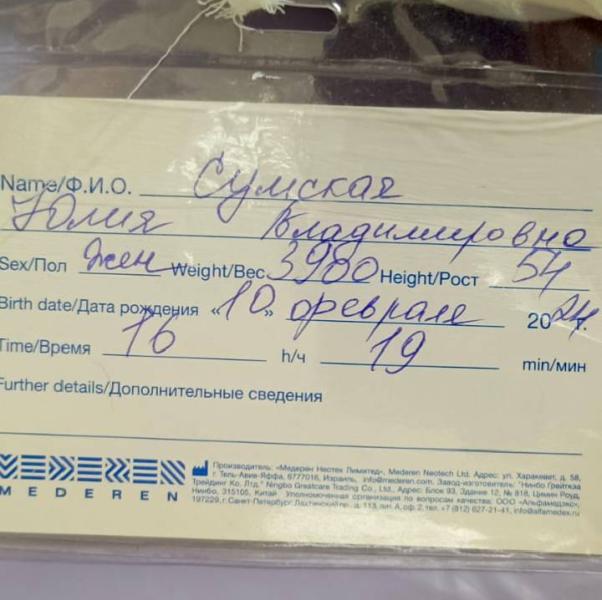 Name/Ф.И.О. Сумская
Юлия Владимировна
Sex/Пол Жен Weight/Вес 3980 Height/Рост 54
Birth date/Дата рождения «10» февраля 2024 г.
Time/Время 16 h/ч 19 min/мин
Further details/Дополнительные сведения
MEDEREN
Производитель: «Медерен Неотек Лимитед», Mederen Neotech Ltd. Адрес: ул. Харакевет, д. 58,
г. Тель-Авив-Яффа, 6777016, Израиль, info@mederen.com. Завод-изготовитель: "Нинбо Грейткэа
Трейдинг Ко, Лтд." Ningbo Greatcare Trading Co., Ltd., Адрес: Блок 93, Здание 12, № 818, Цимин Роуд,
Нинбо, 315105, Китай Уполномоченная организация по вопросам качества: ООО «Альфамедэкс»,
197229, г. Санкт-Петербург, Лахтинский пр., д. 113, лит. А, оф. 2, тел. +7 (812) 627-21-41, info@alfamedex.ru